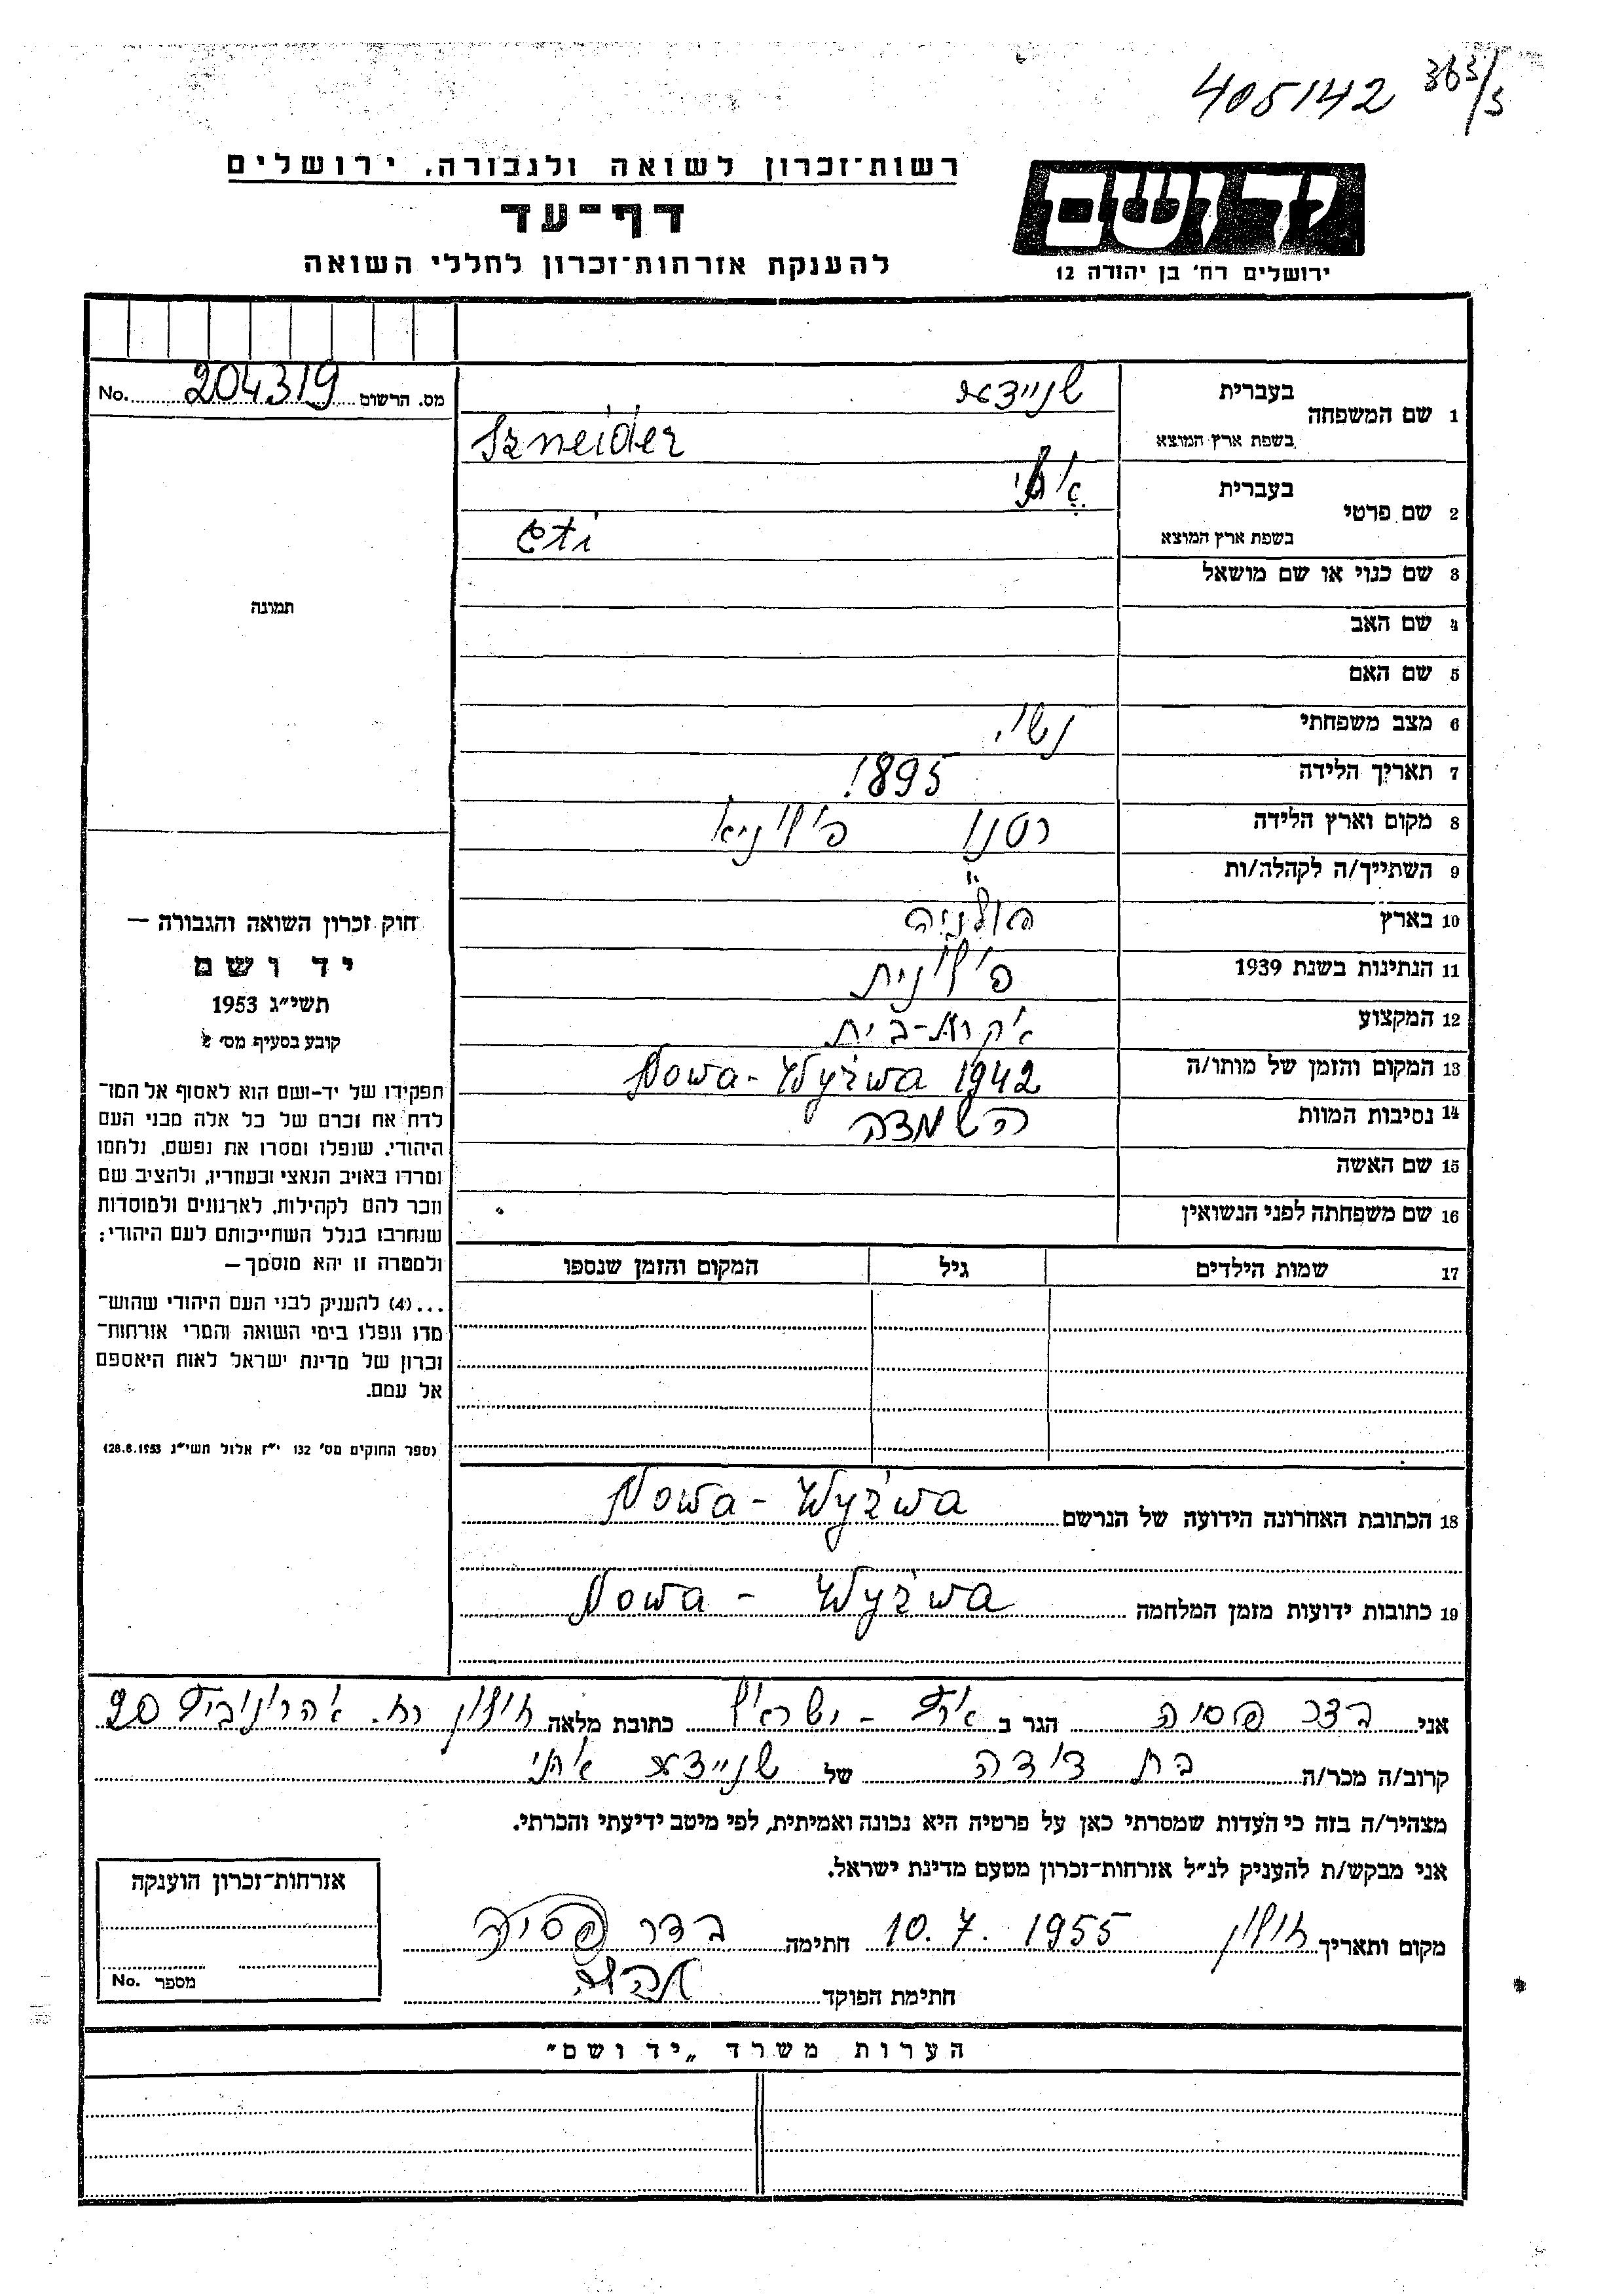 405142 383/3
רשות־זכרון לשואה ולגבורה, ירושלים
דף־עד
להענקת אזרחות־זכרון לחללי השואה
יד ושם
ירושלים רח׳ בן יהודה 12
מס. הרשום 204319 No.
1 שם המשפחה
בעברית שניידר
בשפת ארץ המוצא Szneider
2 שם פרטי
בעברית אתי
בשפת ארץ המוצא Eti
3 שם כנוי או שם מושאל
4 שם האב
5 שם האם
6 מצב משפחתי נשוי
7 תאריך הלידה 1895
8 מקום וארץ הלידה פולניא
9 השתייך/ה לקהלה/ות "
10 בארץ פולניה
11 הנתינות בשנת 1939 פולנית
12 המקצוע עקרת-בית
13 המקום והזמן של מותו/ה Nowa-Wyżwa 1942
14 נסיבות המוות השמדה
15 שם האשה
16 שם משפחתה לפני הנשואין
17 שמות הילדים גיל המקום והזמן שנספו
תמונה
חוק זכרון השואה והגבורה —
יד ושם
תשי״ג 1953
קובע בסעיף מס׳ 2
תפקידו של יד-ושם הוא לאסוף אל המו־
לדת את זכרם של כל אלה מבני העם
היהודי, שנפלו ומסרו את נפשם, נלחמו
ומרדו באויב הנאצי ובעוזריו, ולהציב שם
וזכר להם לקהילות, לארגונים ולמוסדות
שנחרבו בגלל השתייכותם לעם היהודי;
ולמטרה זו יהא מוסמך —
...(4) להעניק לבני העם היהודי שהוש־
מדו ונפלו בימי השואה והמרי אזרחות־
זכרון של מדינת ישראל לאות היאספם
אל עמם.
(ספר החוקים מס׳ 132 י״ז אלול תשי״ג 28.8.1953)
18 הכתובת האחרונה הידועה של הנרשם Nowa - Wyżwa
19 כתובות ידועות מזמן המלחמה Nowa - Wyżwa
אני בדר פסיה הגר ב ארץ - ישראל כתובת מלאה חולון רח. אהרונוביץ 20
קרוב/ה מכר/ה בת דודה של שניידר אתי
מצהיר/ה בזה כי העדות שמסרתי כאן על פרטיה היא נכונה ואמיתית, לפי מיטב ידיעתי והכרתי.
אני מבקש/ת להעניק לנ״ל אזרחות־זכרון מטעם מדינת ישראל.
מקום ותאריך חולון 10.7.1955 חתימה בדר פסיה
חתימת הפוקד
אזרחות־זכרון הוענקה
מספר No.
הערות משרד „יד ושם״